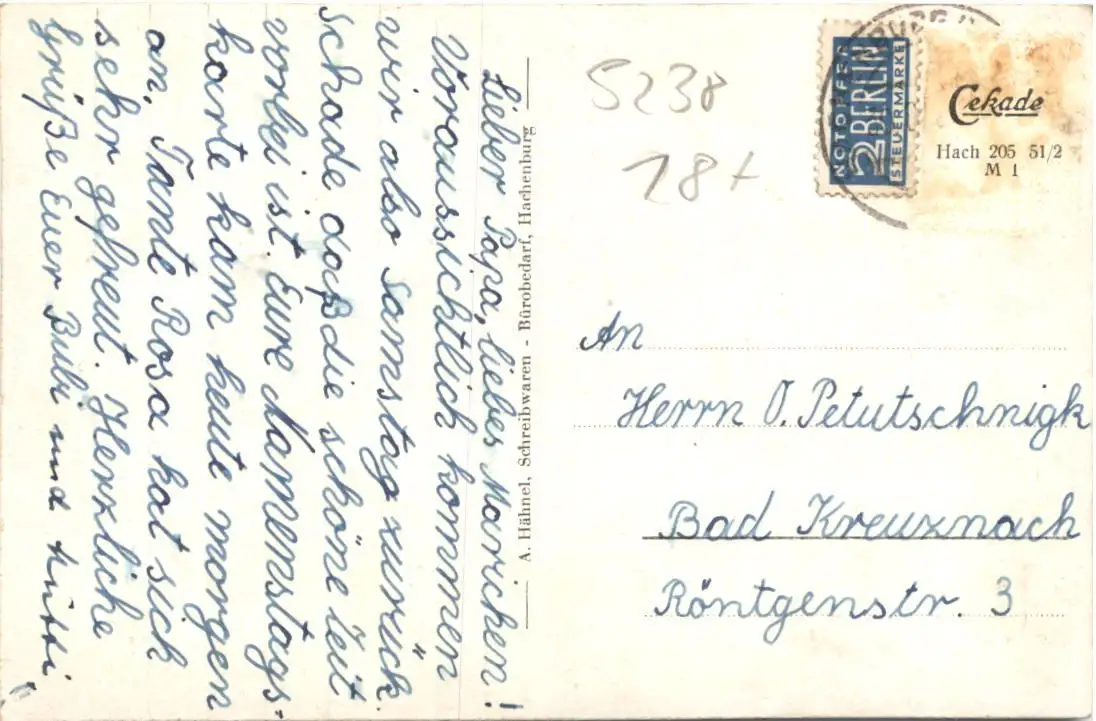 Lieber Papa, liebes Mariechen!
Voraussichtlich kommen
wir also Samstag zurück.
Schade daß die schöne Zeit
vorbei ist. Eure Namenstags-
karte kam heute morgen
an, Tante Rosa hat sich
sehr gefreut. Herzliche
Grüße Euer Bubi und
A. Hähnel, Schreibwaren - Bürobedarf, Hachenburg
5238
18+
NOTOPFER
2 BERLIN
STEUERMARKE
Cekade
Hach 205 51/2
M 1
An
Herrn O. Petutschnigk
Bad Kreuznach
Röntgenstr. 3